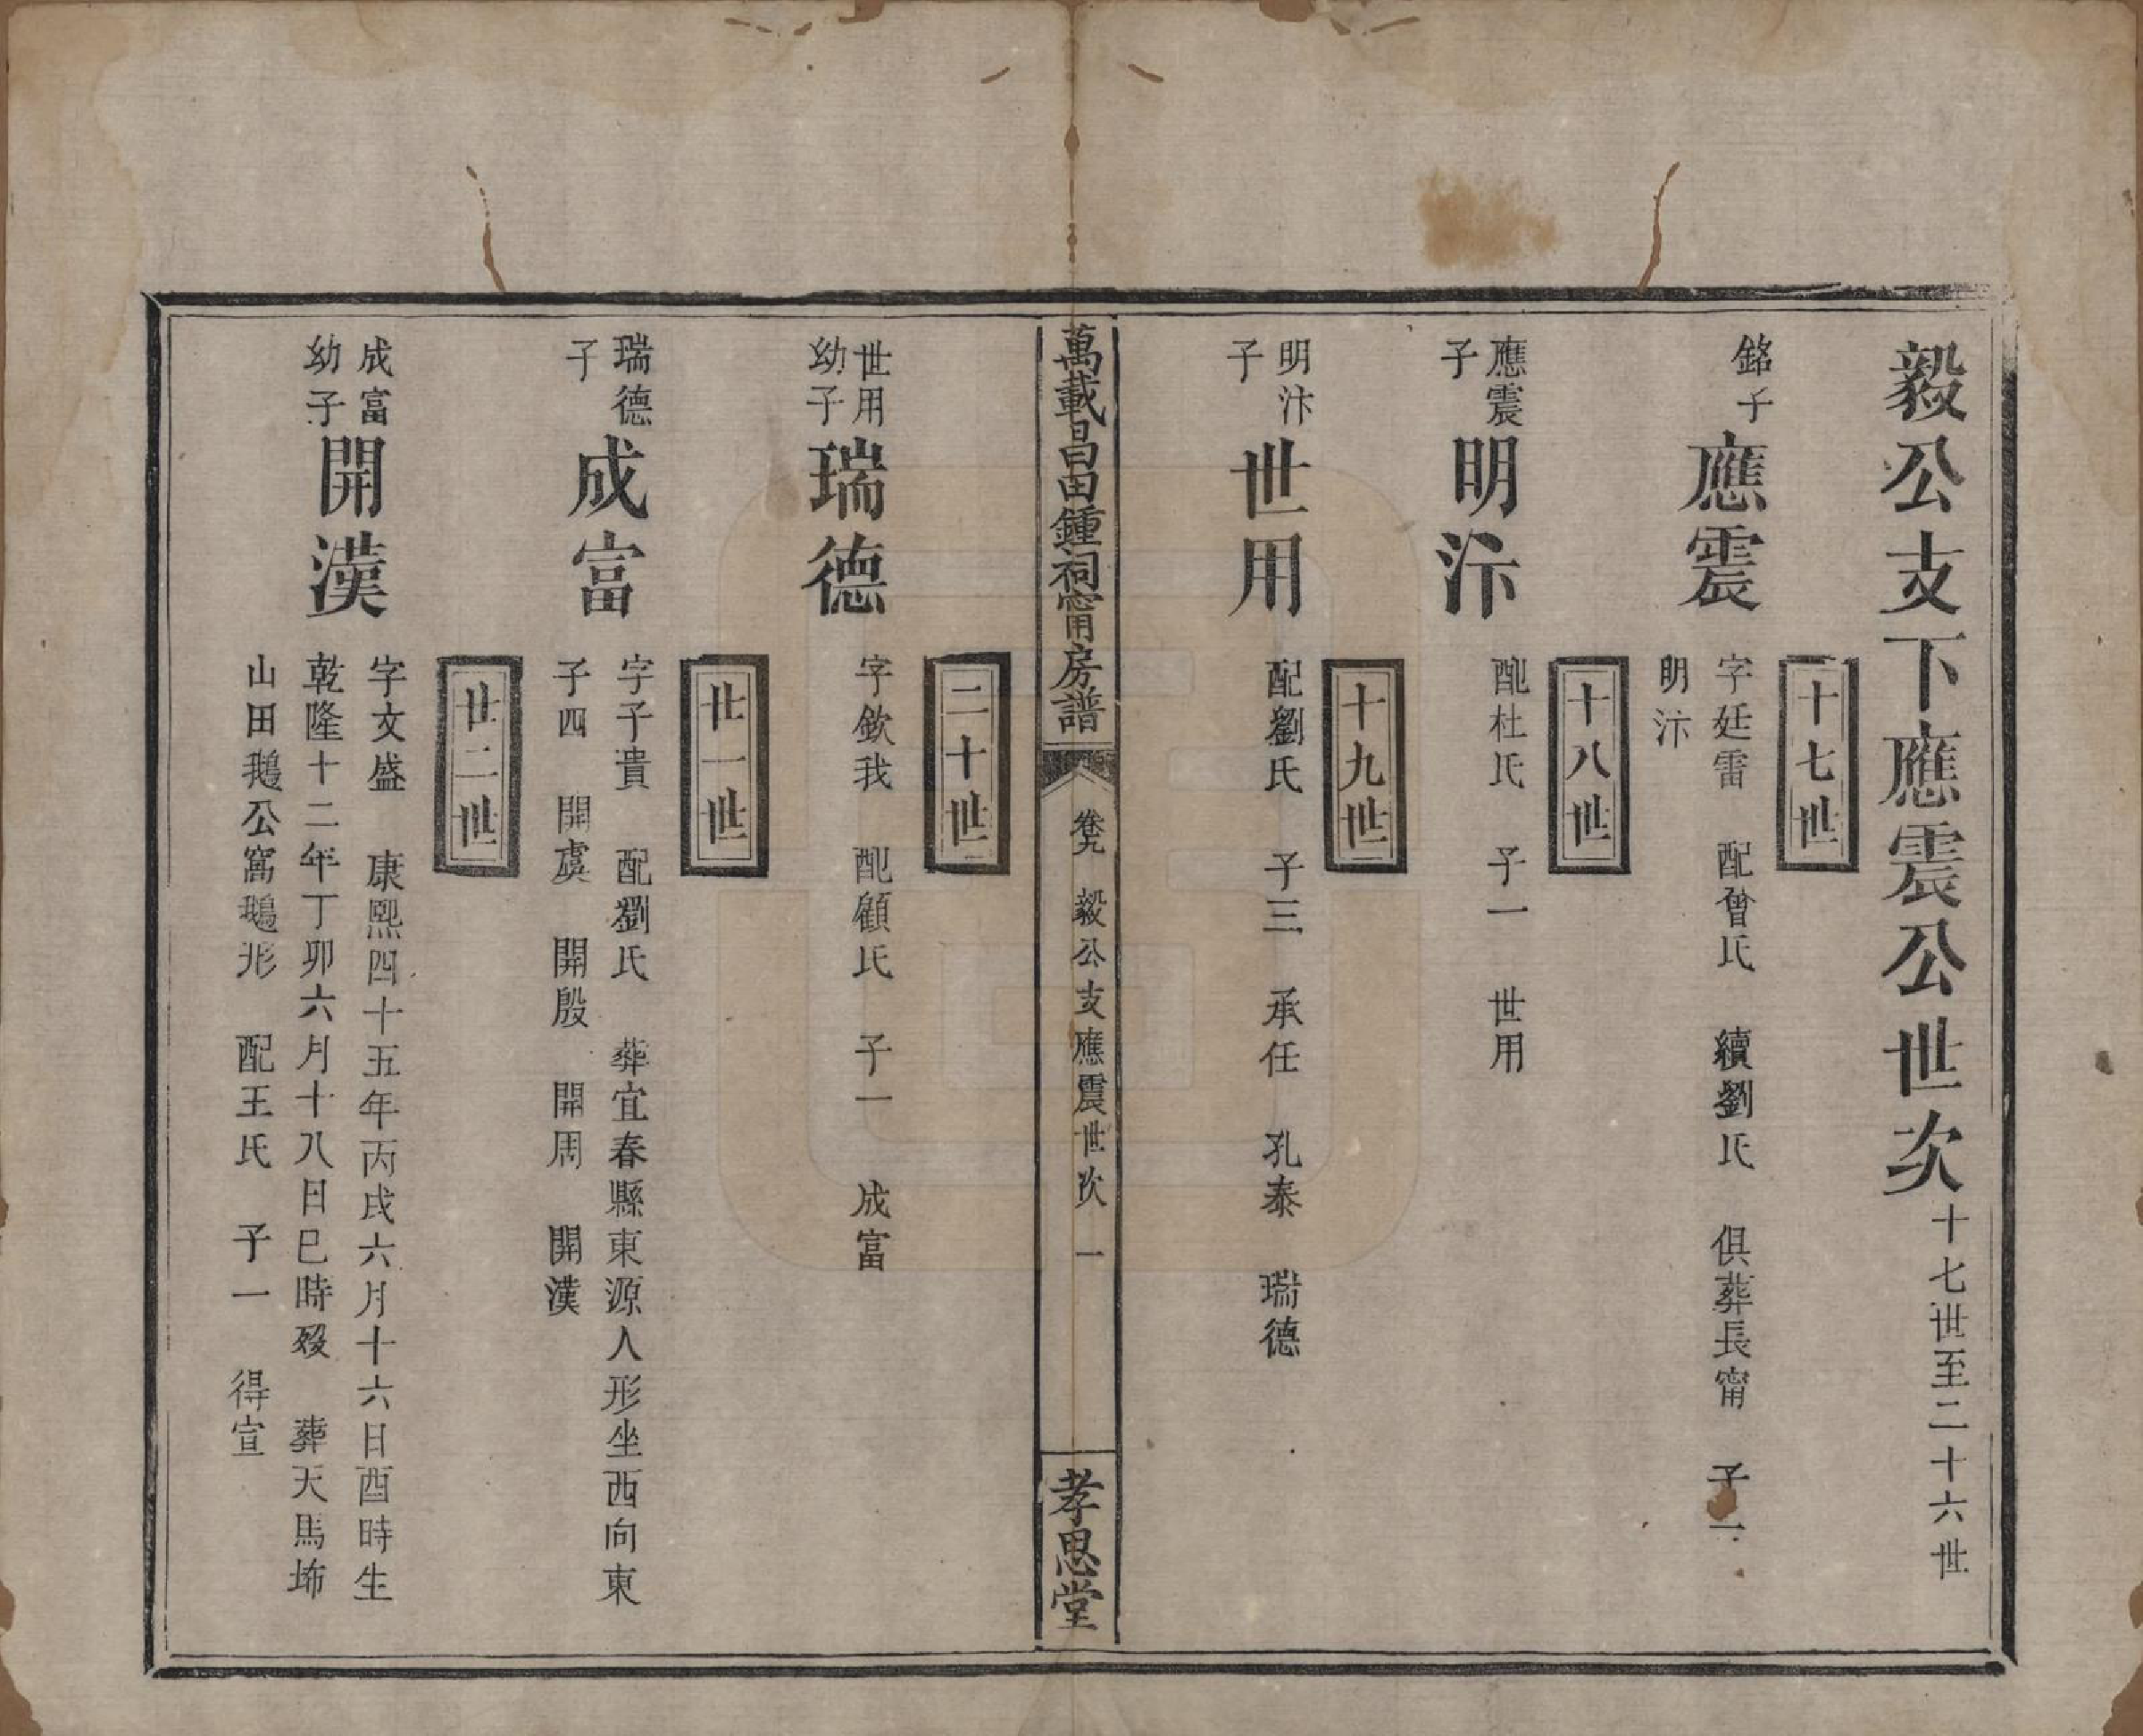 毅公支下應震公世次十七世至二十六世
十七世
銘子
應震
字廷雷　配曾氏　續劉氏　俱葬長甯　子一
明汴
十八世
應震
子
明汴
配杜氏　子一　世用
十九世
明汴
子
世用
配劉氏　子三　承任　孔泰　瑞德
萬載昌田鍾祠甯房譜
卷九　毅公支應震世次　一
孝思堂
二十世
世用
幼子
瑞德
字欽我　配顧氏　子一　成富
廿一世
瑞德
子
成富
字子貴　配劉氏　葬宜春縣東源人形坐西向東
子四　開虞　開殷　開周　開漢
廿二世
成富
幼子
開漢
字文盛　康熙四十五年丙戌六月十六日酉時生
乾隆十二年丁卯六月十八日巳時歿　葬天馬㘵
山田鵝公窩鵝形　配王氏　子一　得宣